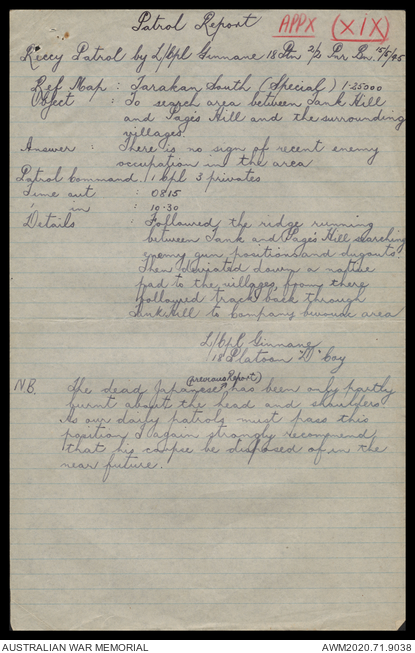 Patrol Report APPX (XIX)
Reccy Patrol by L/Cpl Ginnane 18 Ptn 2/2 Par Bn. 15/5/45
Ref Map : Tarakan South (Special) 1-25000
Object : To search area between Tank Hill
and Pages Hill and the surrounding
villages.
Answer : There is no sign of recent enemy
occupation in the area
Patrol Command 1 Cpl 3 privates
Time out : 0815
" in : 10.30
Details : Followed the ridge running
between Tank and Page's Hill searching
enemy gun positions and dugouts
Then deviated down a native
pad to the villages, from there
followed track back through
Tank Hill to Company bivouac area
L/Cpl Ginnane
18 Platoon "D" Coy
N.B. The dead Japanese (previous Report) has been only partly
burnt about the head and shoulders
As our daily patrols must pass this
position I again strongly recommend
that his corpse be disposed of in the
near future.
AUSTRALIAN WAR MEMORIAL
AWM2020.71.9038